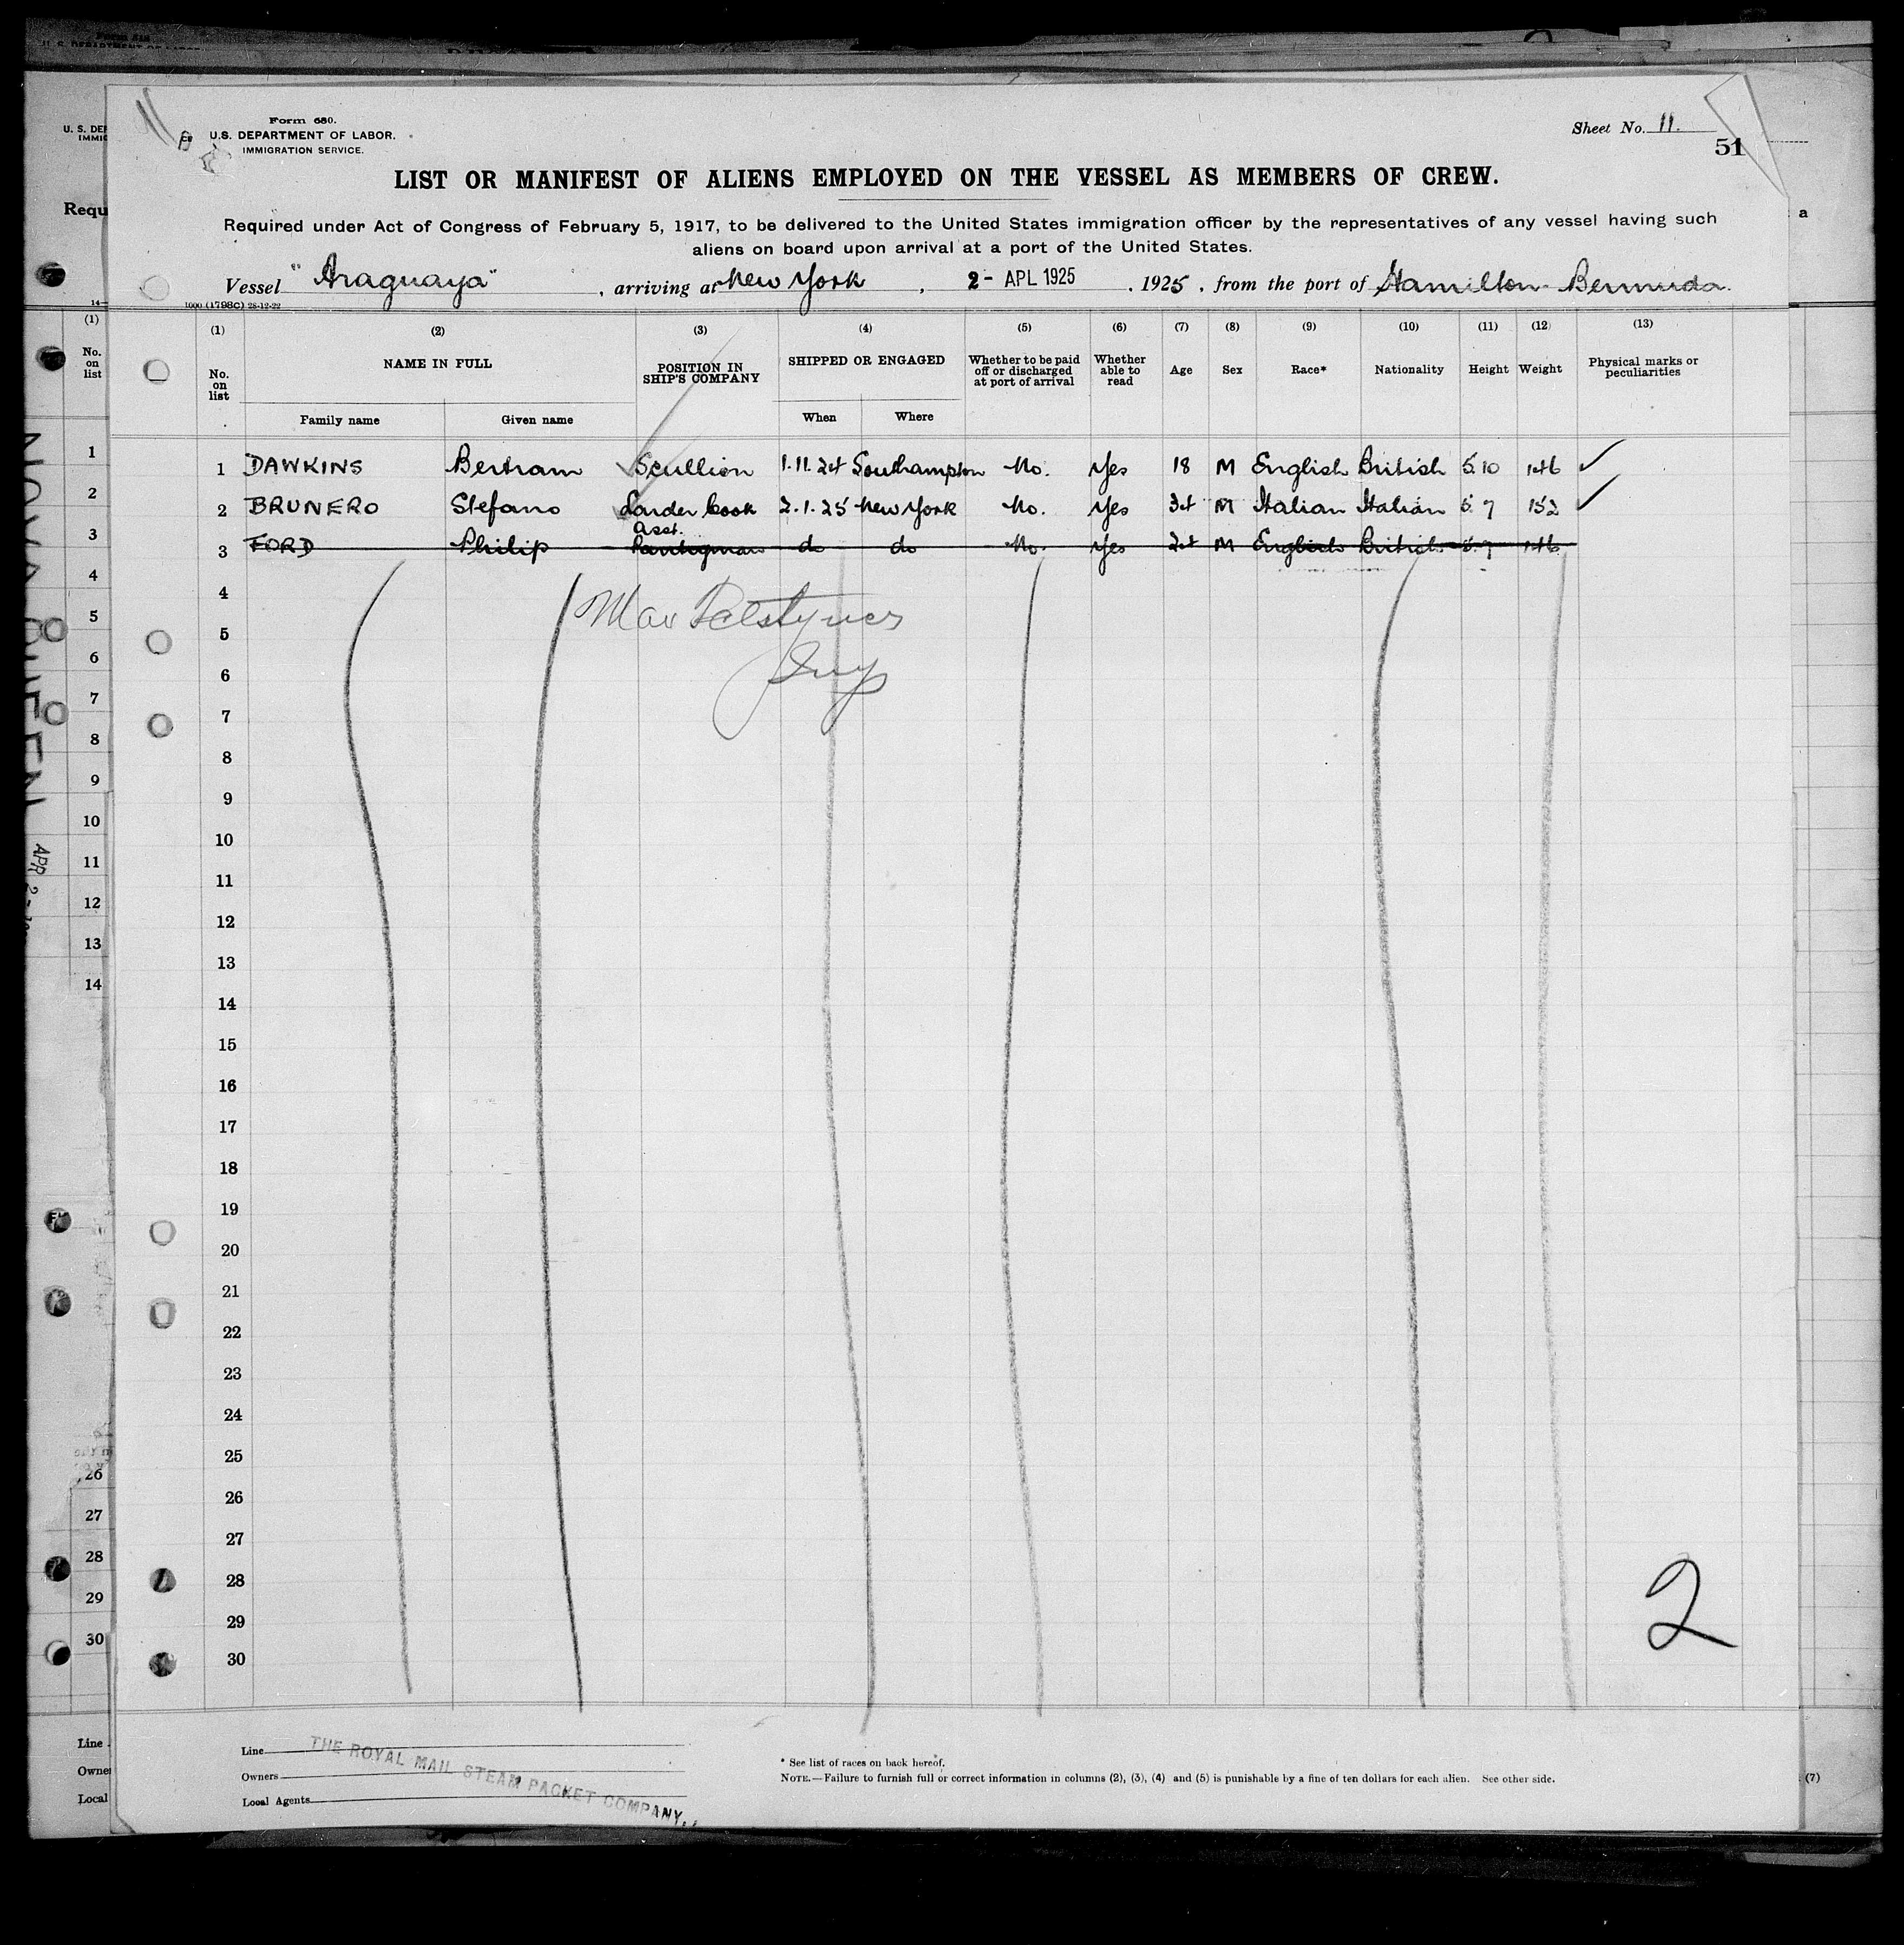 Form 680.
U.S. DEPARTMENT OF LABOR.
IMMIGRATION SERVICE.
Sheet No. 11.
51
LIST OR MANIFEST OF ALIENS EMPLOYED ON THE VESSEL AS MEMBERS OF CREW.
Required under Act of Congress of February 5, 1917, to be delivered to the United States immigration officer by the representatives of any vessel having such
aliens on board upon arrival at a port of the United States.
Vessel "Araguaya", arriving at New York, 2- APL 1925, 1925, from the port of Hamilton Bermuda.
1000 (1798C) 28-12-22
(1) (2) (3) (4) (5) (6) (7) (8) (9) (10) (11) (12) (13)
No. on list NAME IN FULL POSITION IN SHIP'S COMPANY SHIPPED OR ENGAGED Whether to be paid off or discharged at port of arrival Whether able to read Age Sex Race* Nationality Height Weight Physical marks or peculiarities
Family name Given name When Where
1 DAWKINS Bertram Scullion 1.11.24 Southampton No. Yes 18 M English British 5.10 146 ✓
2 BRUNERO Stefano Larder Cook 2.1.25 New York No. Yes 34 M Italian Italian 5.7 152 ✓
3 FORD Philip Asst. Pantryman do do No. Yes 24 M English British 5.7 146
4
5
6
7
8
9
10
11
12
13
14
15
16
17
18
19
20
21
22
23
24
25
26
27
28
29
30
2
Line
Owners
Local Agents
THE ROYAL MAIL STEAM PACKET COMPANY.
* See list of races on back hereof.
NOTE.—Failure to furnish full or correct information in columns (2), (3), (4) and (5) is punishable by a fine of ten dollars for each alien. See other side.